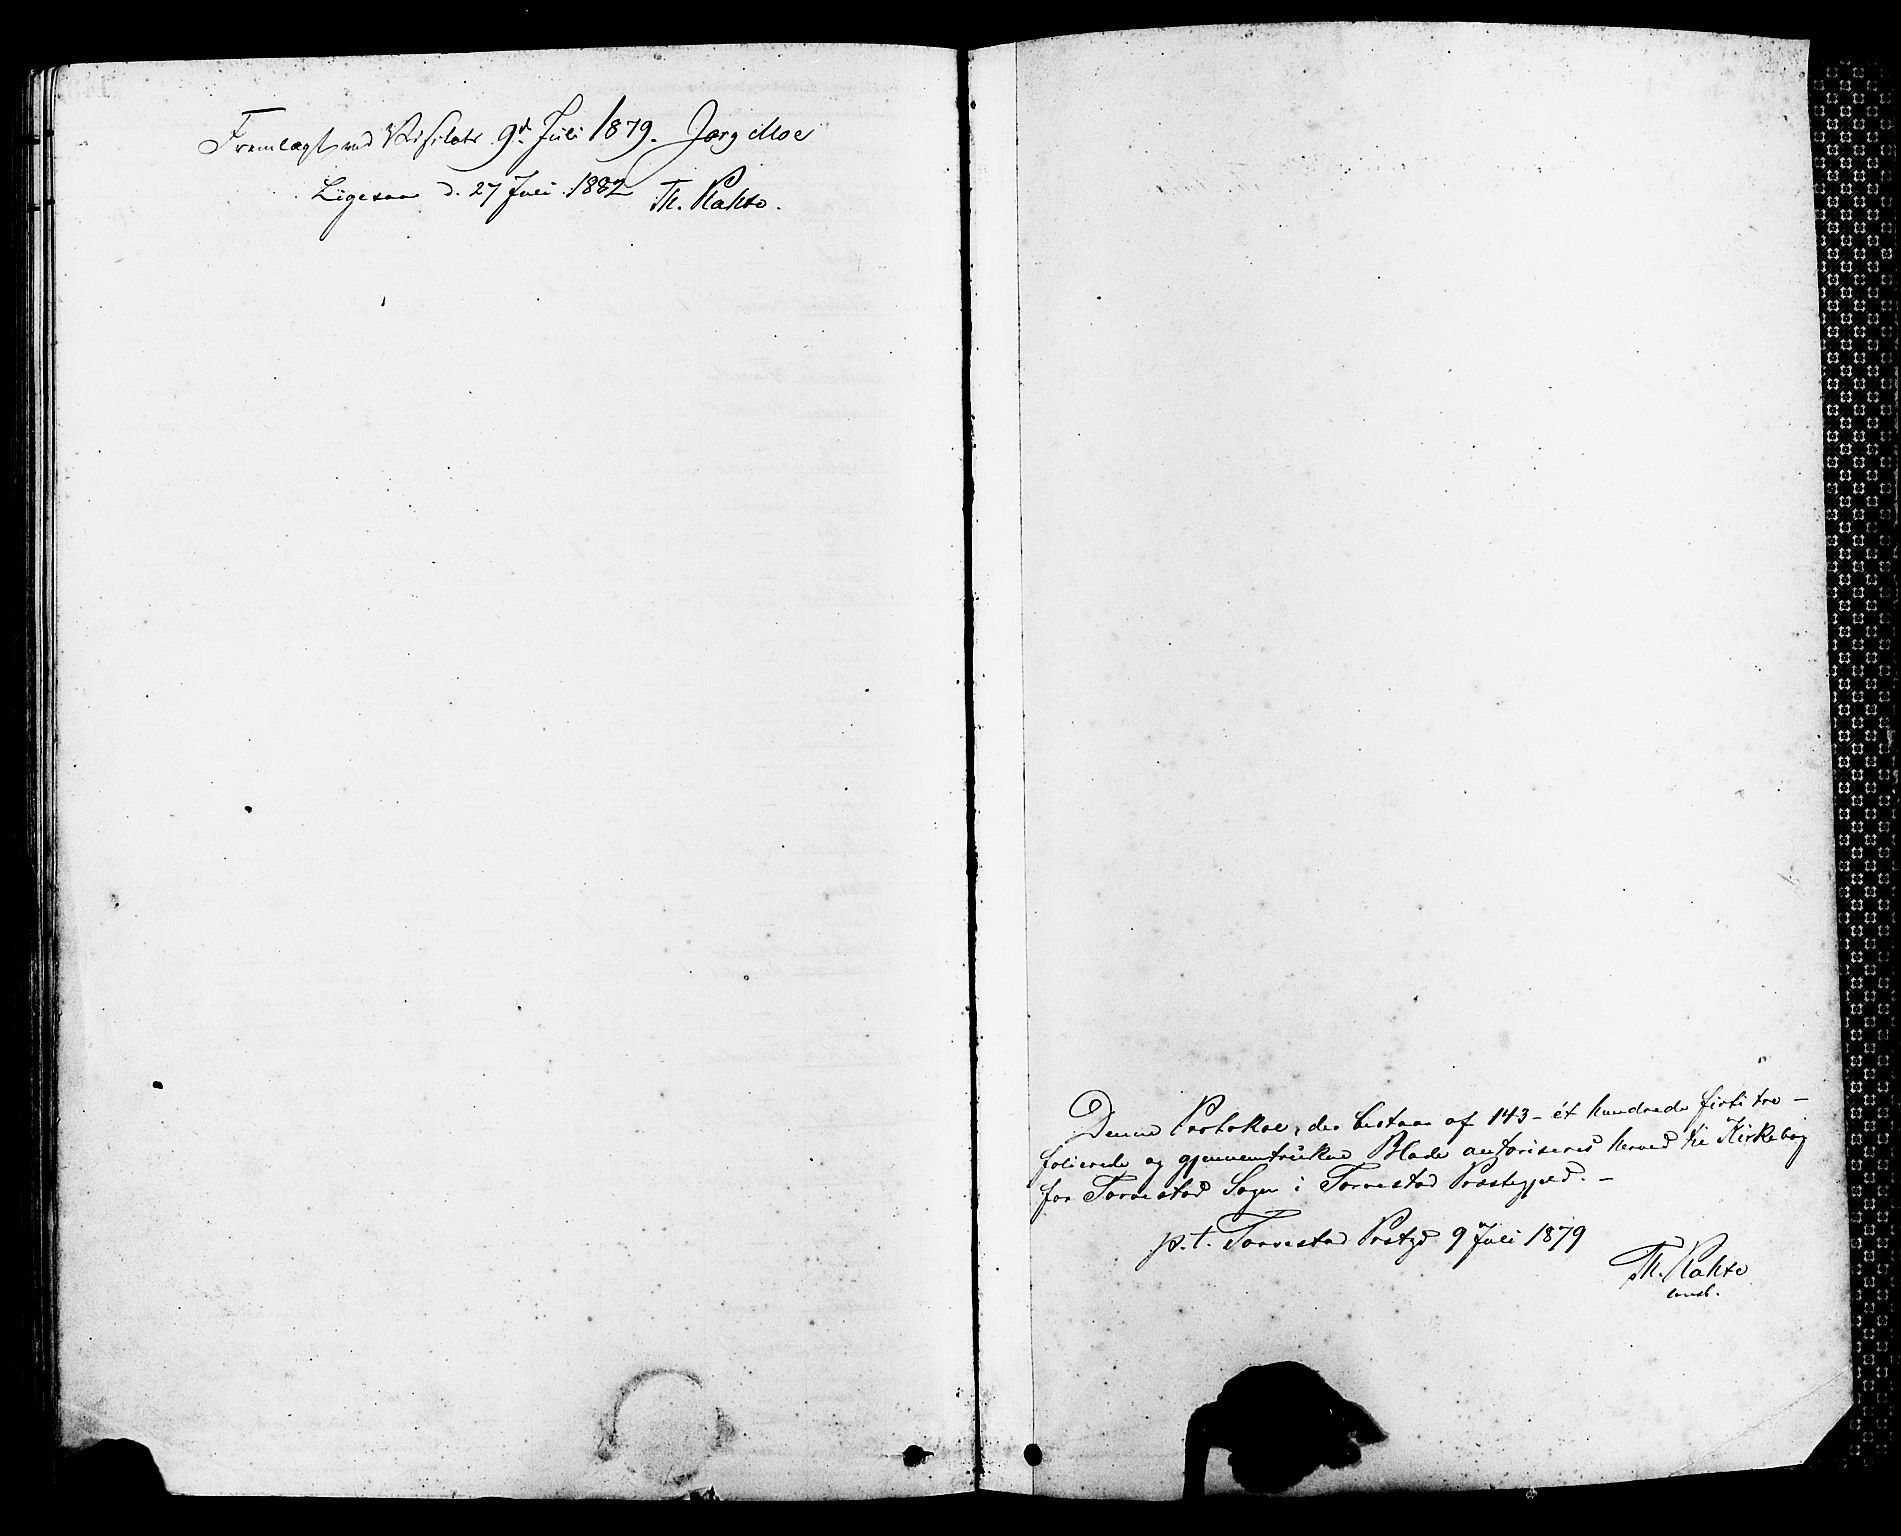 Fremlagt ved Visitats 9d Juli 1879. Jørg Moe
Ligesaa d. 27 Juli 1882 Th. Rahto.
Denne Protokol, der bestaar af 143 – ét hundrede firti tre –
folierede og gjennemtrukne Blade autoriseres herved til Kirkebog
for Torvestad Sogn i Torvestad Præstegjeld. –
p. t. Torvestad Prstgd 9 Juli 1879
Th. Rahto
const.